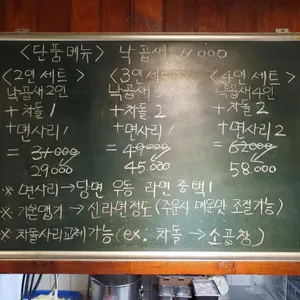 <단품메뉴> 낙곱새 11000
<2인세트> <3인세트> <4인세트>
낙곱새 2인 낙곱새 3인 낙곱새 4인
+차돌 1 +차돌 2 +차돌 2
+면사리 1 +면사리 1 +면사리 2
= 31000 = 49000 = 62000
29000 45.000 58.000
※ 면사리→당면 우동 라면 중 택1
※ 기본맵기→신라면정도 (주문시 매운맛 조절가능)
※ 차돌사리교체가능 (ex: 차돌→소곱창)